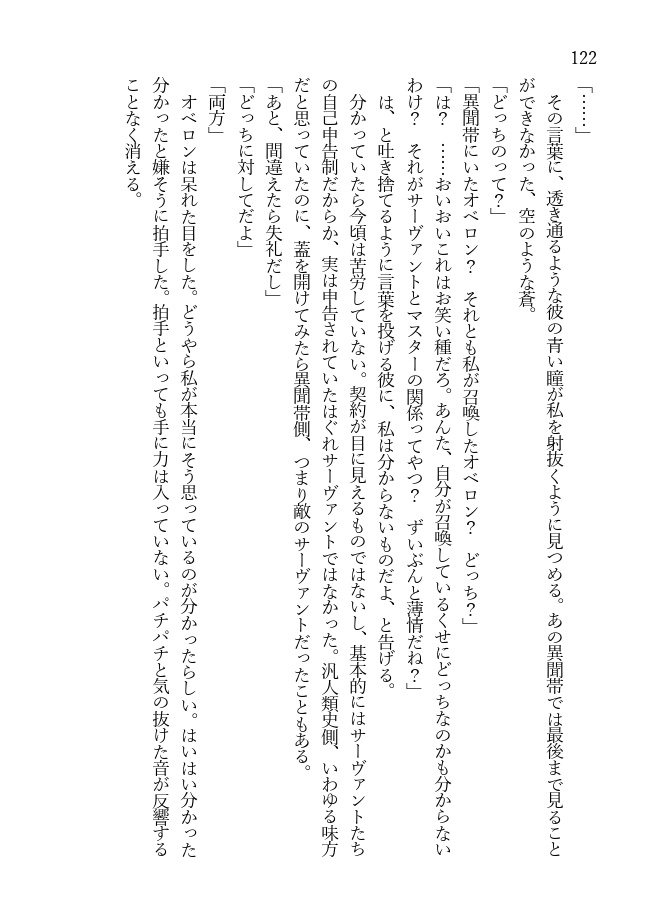 122
「……」
　その言葉に、透き通るような彼の青い瞳が私を射抜くように見つめる。あの異聞帯では最後まで見ること
ができなかった、空のような蒼。
「どっちのって？」
「異聞帯にいたオベロン？　それとも私が召喚したオベロン？　どっち？」
「は？　……おいおいこれはお笑い種だろ。あんた、自分が召喚しているくせにどっちなのかも分からない
わけ？　それがサーヴァントとマスターの関係ってやつ？　ずいぶんと薄情だね？」
　は、と吐き捨てるように言葉を投げる彼に、私は分からないものだよ、と告げる。
　分かっていたら今頃は苦労していない。契約が目に見えるものではないし、基本的にはサーヴァントたち
の自己申告制だからか、実は申告されていたはぐれサーヴァントではなかった。汎人類史側、いわゆる味方
だと思っていたのに、蓋を開けてみたら異聞帯側、つまり敵のサーヴァントだったこともある。
「あと、間違えたら失礼だし」
「どっちに対してだよ」
「両方」
　オベロンは呆れた目をした。どうやら私が本当にそう思っているのが分かったらしい。はいはい分かった
分かったと嫌そうに拍手した。拍手といっても手に力は入っていない。パチパチと気の抜けた音が反響する
ことなく消える。